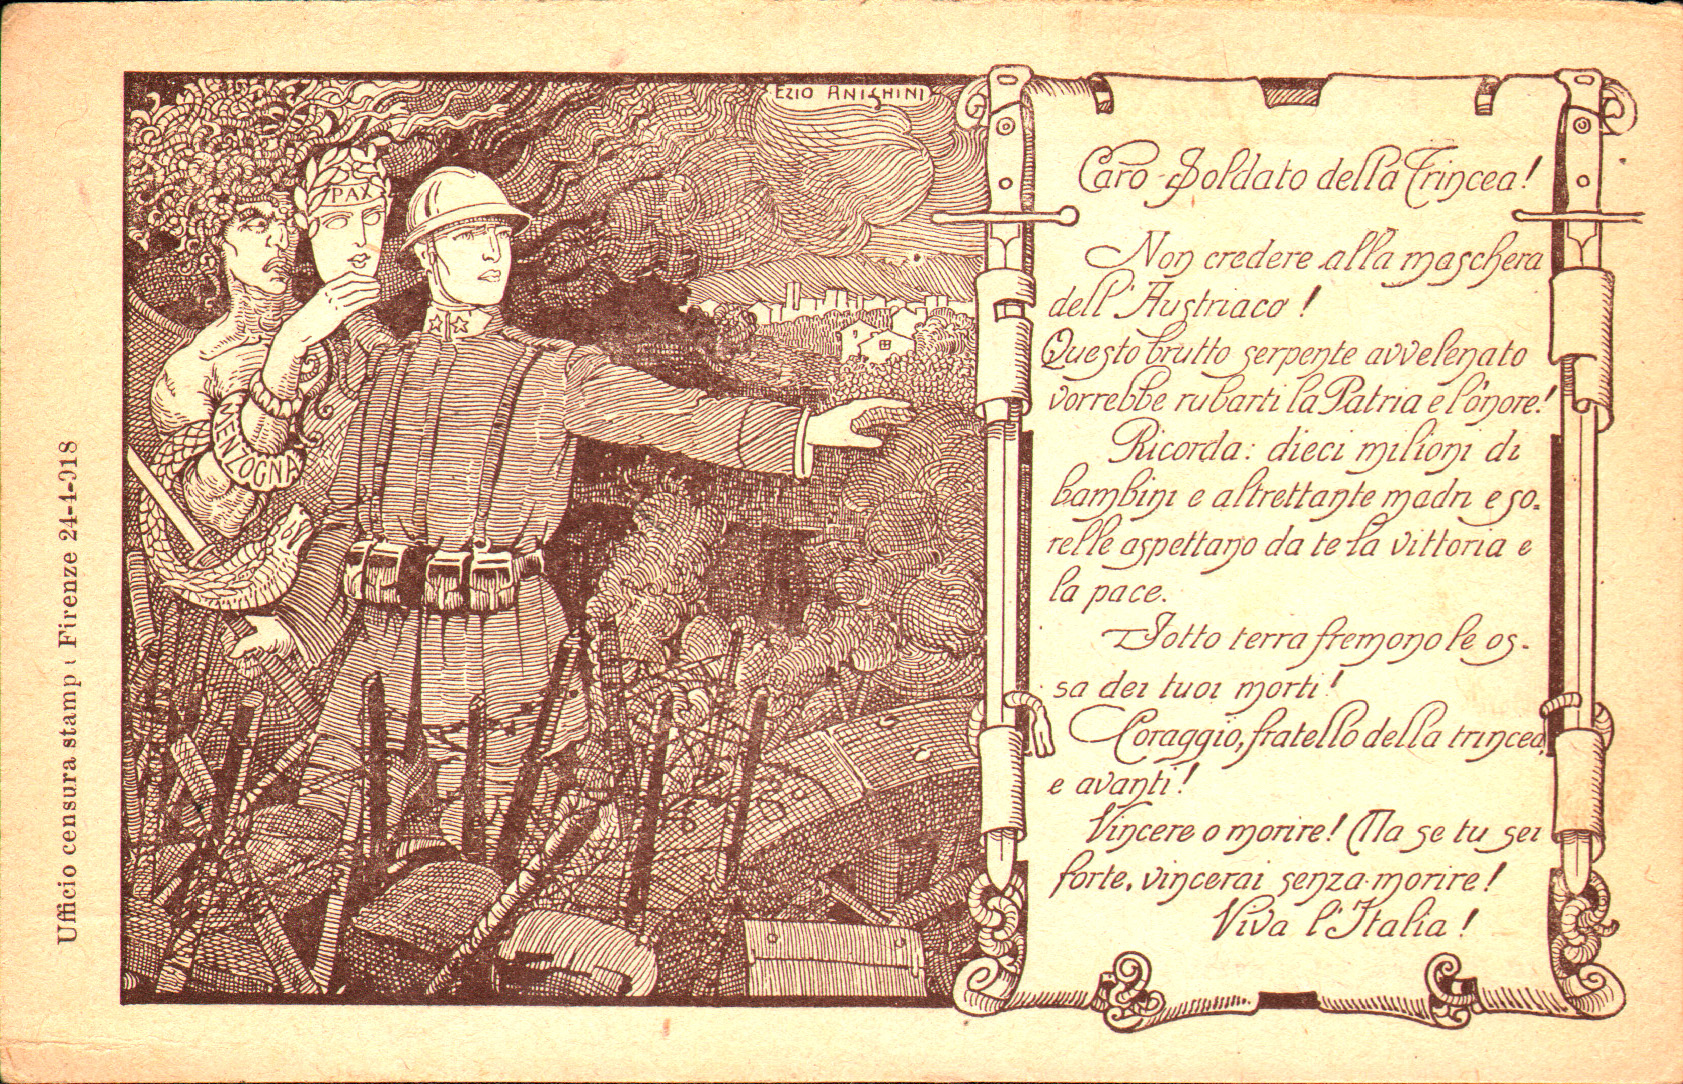 EZIO ANICHINI
PAX
MENZOGNA
Ufficio censura stamp Firenze 24-4-918
Caro Soldato della Trincea!
Non credere alla maschera
dell'Austriaco!
Questo brutto serpente avvelenato
vorrebbe rubarti la Patria e l'onore!
Ricorda: dieci milioni di
bambini e altrettante madri e so-
relle aspettano da te la vittoria e
la pace.
Sotto terra fremono le os-
sa dei tuoi morti!
Coraggio, fratello della trincea,
e avanti!
Vincere o morire! Ma se tu sei
forte, vincerai senza morire!
Viva l'Italia!